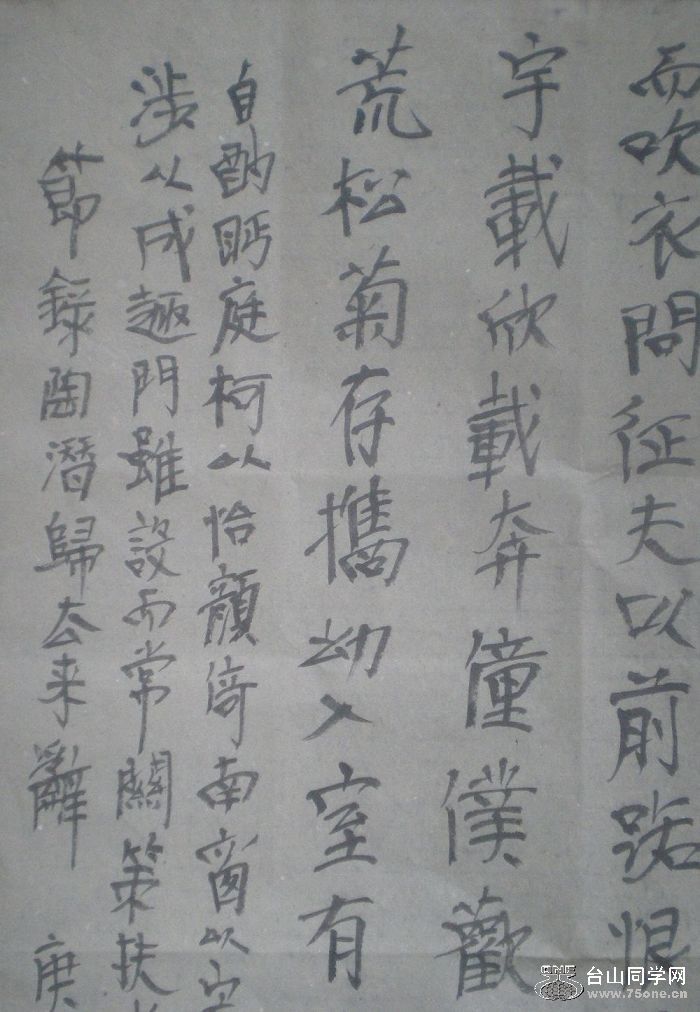 而吹衣問征夫以前路恨
宇載欣載奔僮僕歡
荒松菊存攜幼入室有
自酌眄庭柯以怡顏倚南窗以
涉以成趣門雖設而常關策扶
節錄陶潛歸去来辭 庚
ONE 台山同学网
www.75one.cn